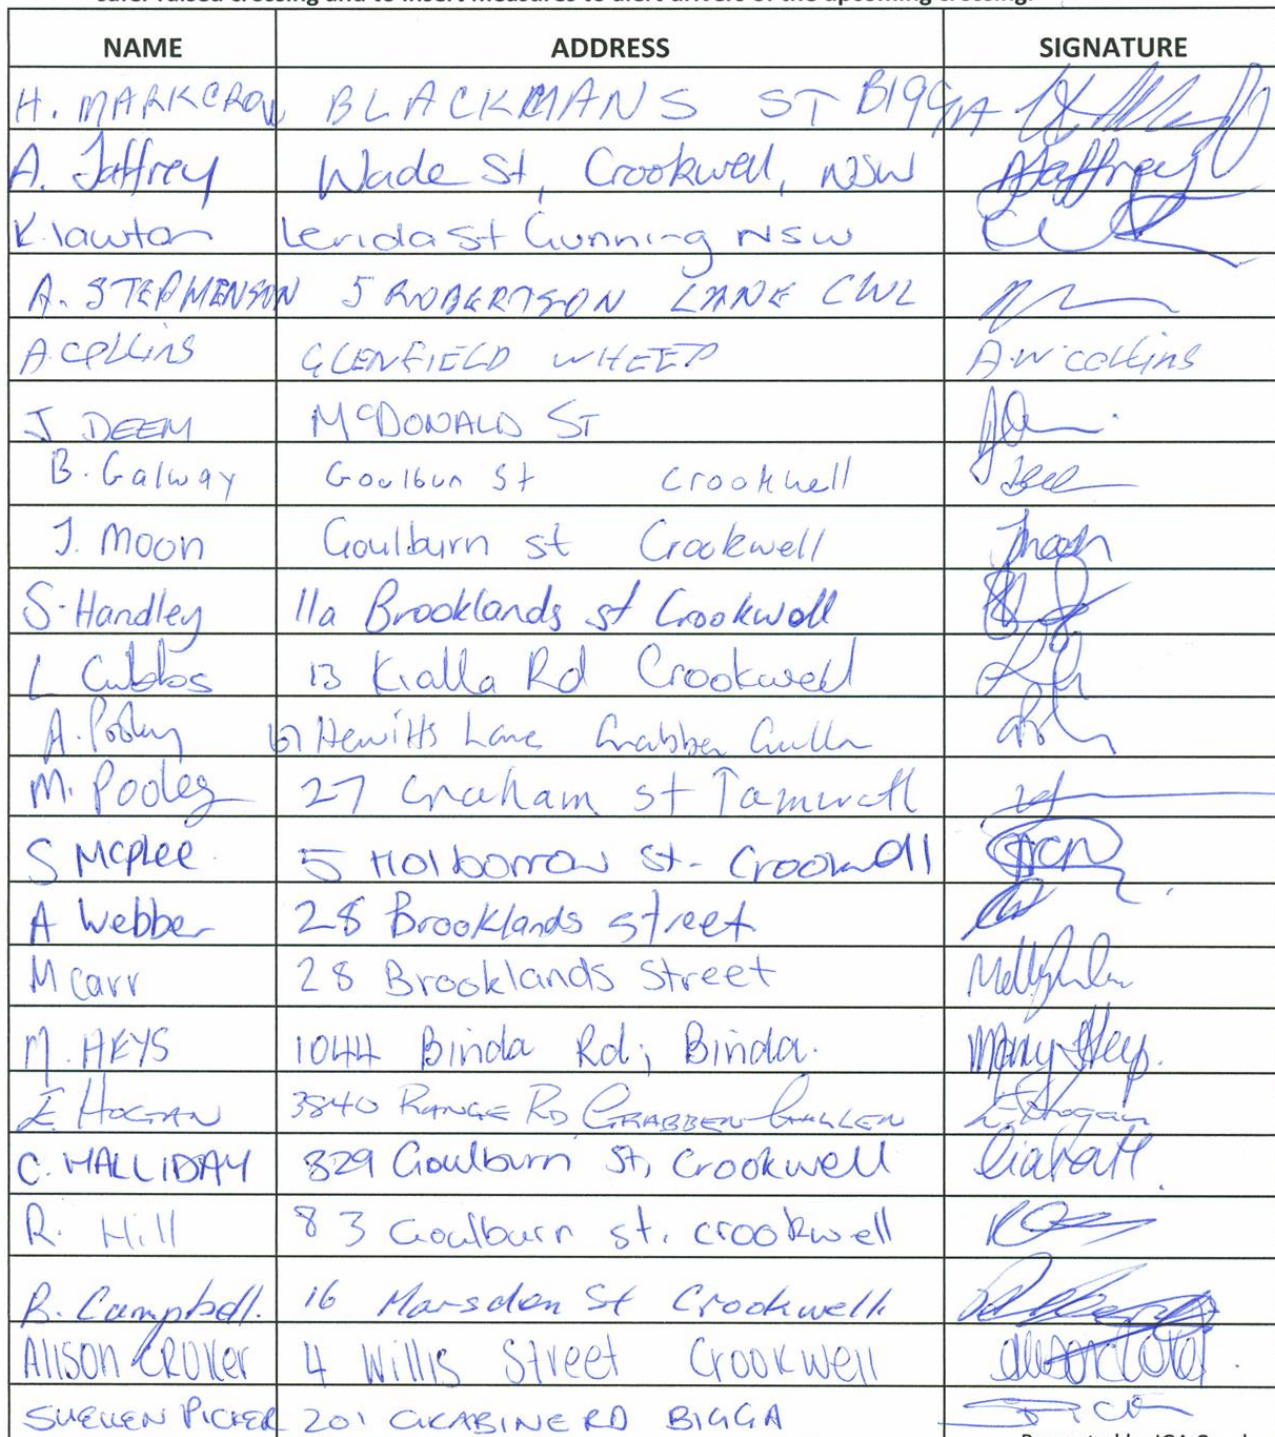 safer raised crossing and to insert measures to alert drivers of the upcoming crossing.
NAME ADDRESS SIGNATURE
H. MARKCROW BLACKMANS ST BIGGA
A. Jaffrey Wade St, Crookwell, NSW AJaffrey
K. lawton Lerida St Gunning NSW
A. STEPHENSON 5 ROBERTSON LANE CWL
A COLLINS GLENFIELD WHEEO A.W. collins
J DEEM McDONALD ST
B. Galway Goulbun St Crookwell
J. Moon Goulburn st Crookwell Jmoon
S. Handley 11a Brooklands st Crookwell
L Cubbs 13 Kialla Rd Crookwell
A. Pooley Hewitts Lane Grabben Gullen
M. Pooley 27 Graham st Tamworth
S McPlee 5 Holborrow St - Crookwell
A Webber 28 Brooklands street
M Carr 28 Brooklands Street
M. HEYS 1044 Binda Rd, Binda. Mary Heys.
E HOGAN 3840 RANGE RD GRABBEN GULLEN E Hogan
C. HALLIDAY 329 Goulburn St, Crookwell
R. Hill 83 Goulburn st. crookwell
B. Campbell. 16 Marsden St Crookwell
Alison CROKER 4 Willis Street Crookwell
SUELLEN PICKER 201 GRABINE RD BIGGA